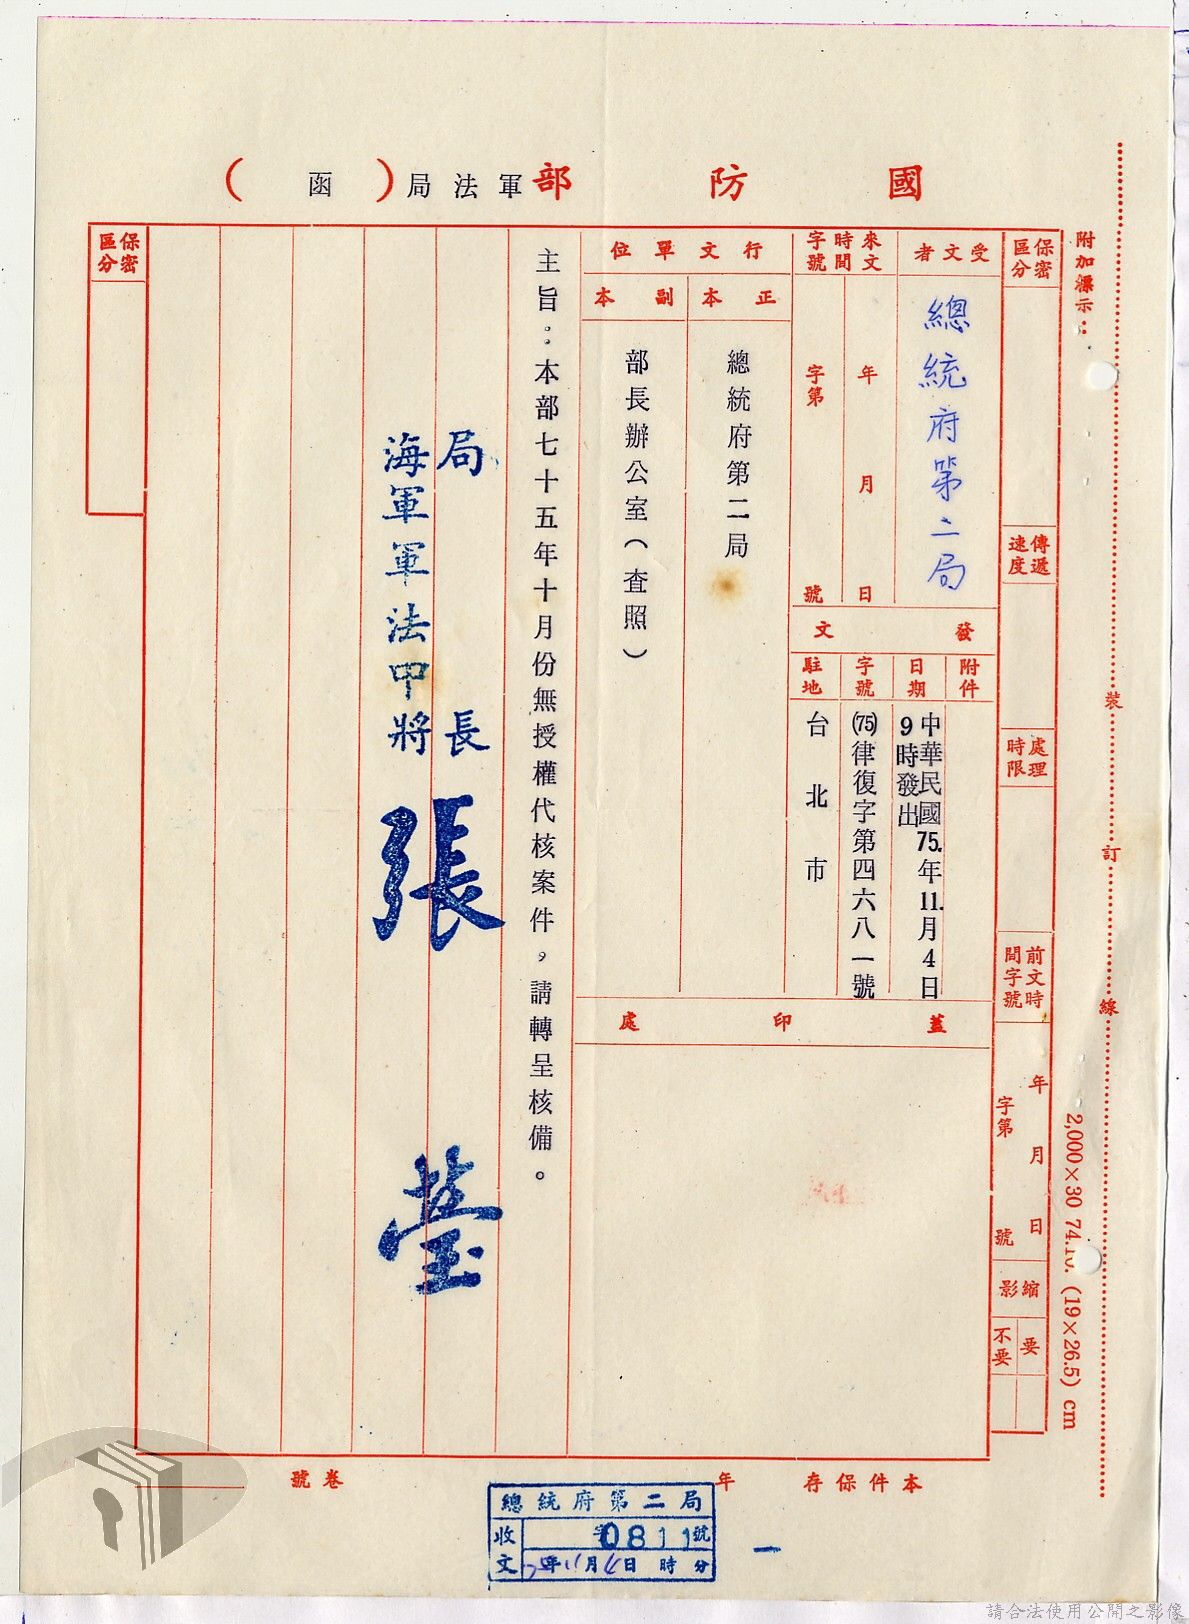 國防部軍法局（函）
附加標示：
裝
訂
線
2,000×30 74.10. (19×26.5) cm
保密區分
傳遞速度
處理時限
前文時間字號
年 月 日
字第 號
縮影
要
不要
受文者
總統府第二局
來文時間字號
年 月 日
字第 號
發文
附件
日期
中華民國75.年11.月4日
9時發出
字號
(75)律復字第四六八一號
駐地
台北市
行文單位
正本
總統府第二局
副本
部長辦公室（查照）
蓋印處
主旨：本部七十五年十月份無授權代核案件，請轉呈核備。
局長
海軍軍法中將
張
保密區分
本件保存 年
卷號
總統府第二局
收文
字0811號
75年11月4日 時 分
請合法使用公開之影像